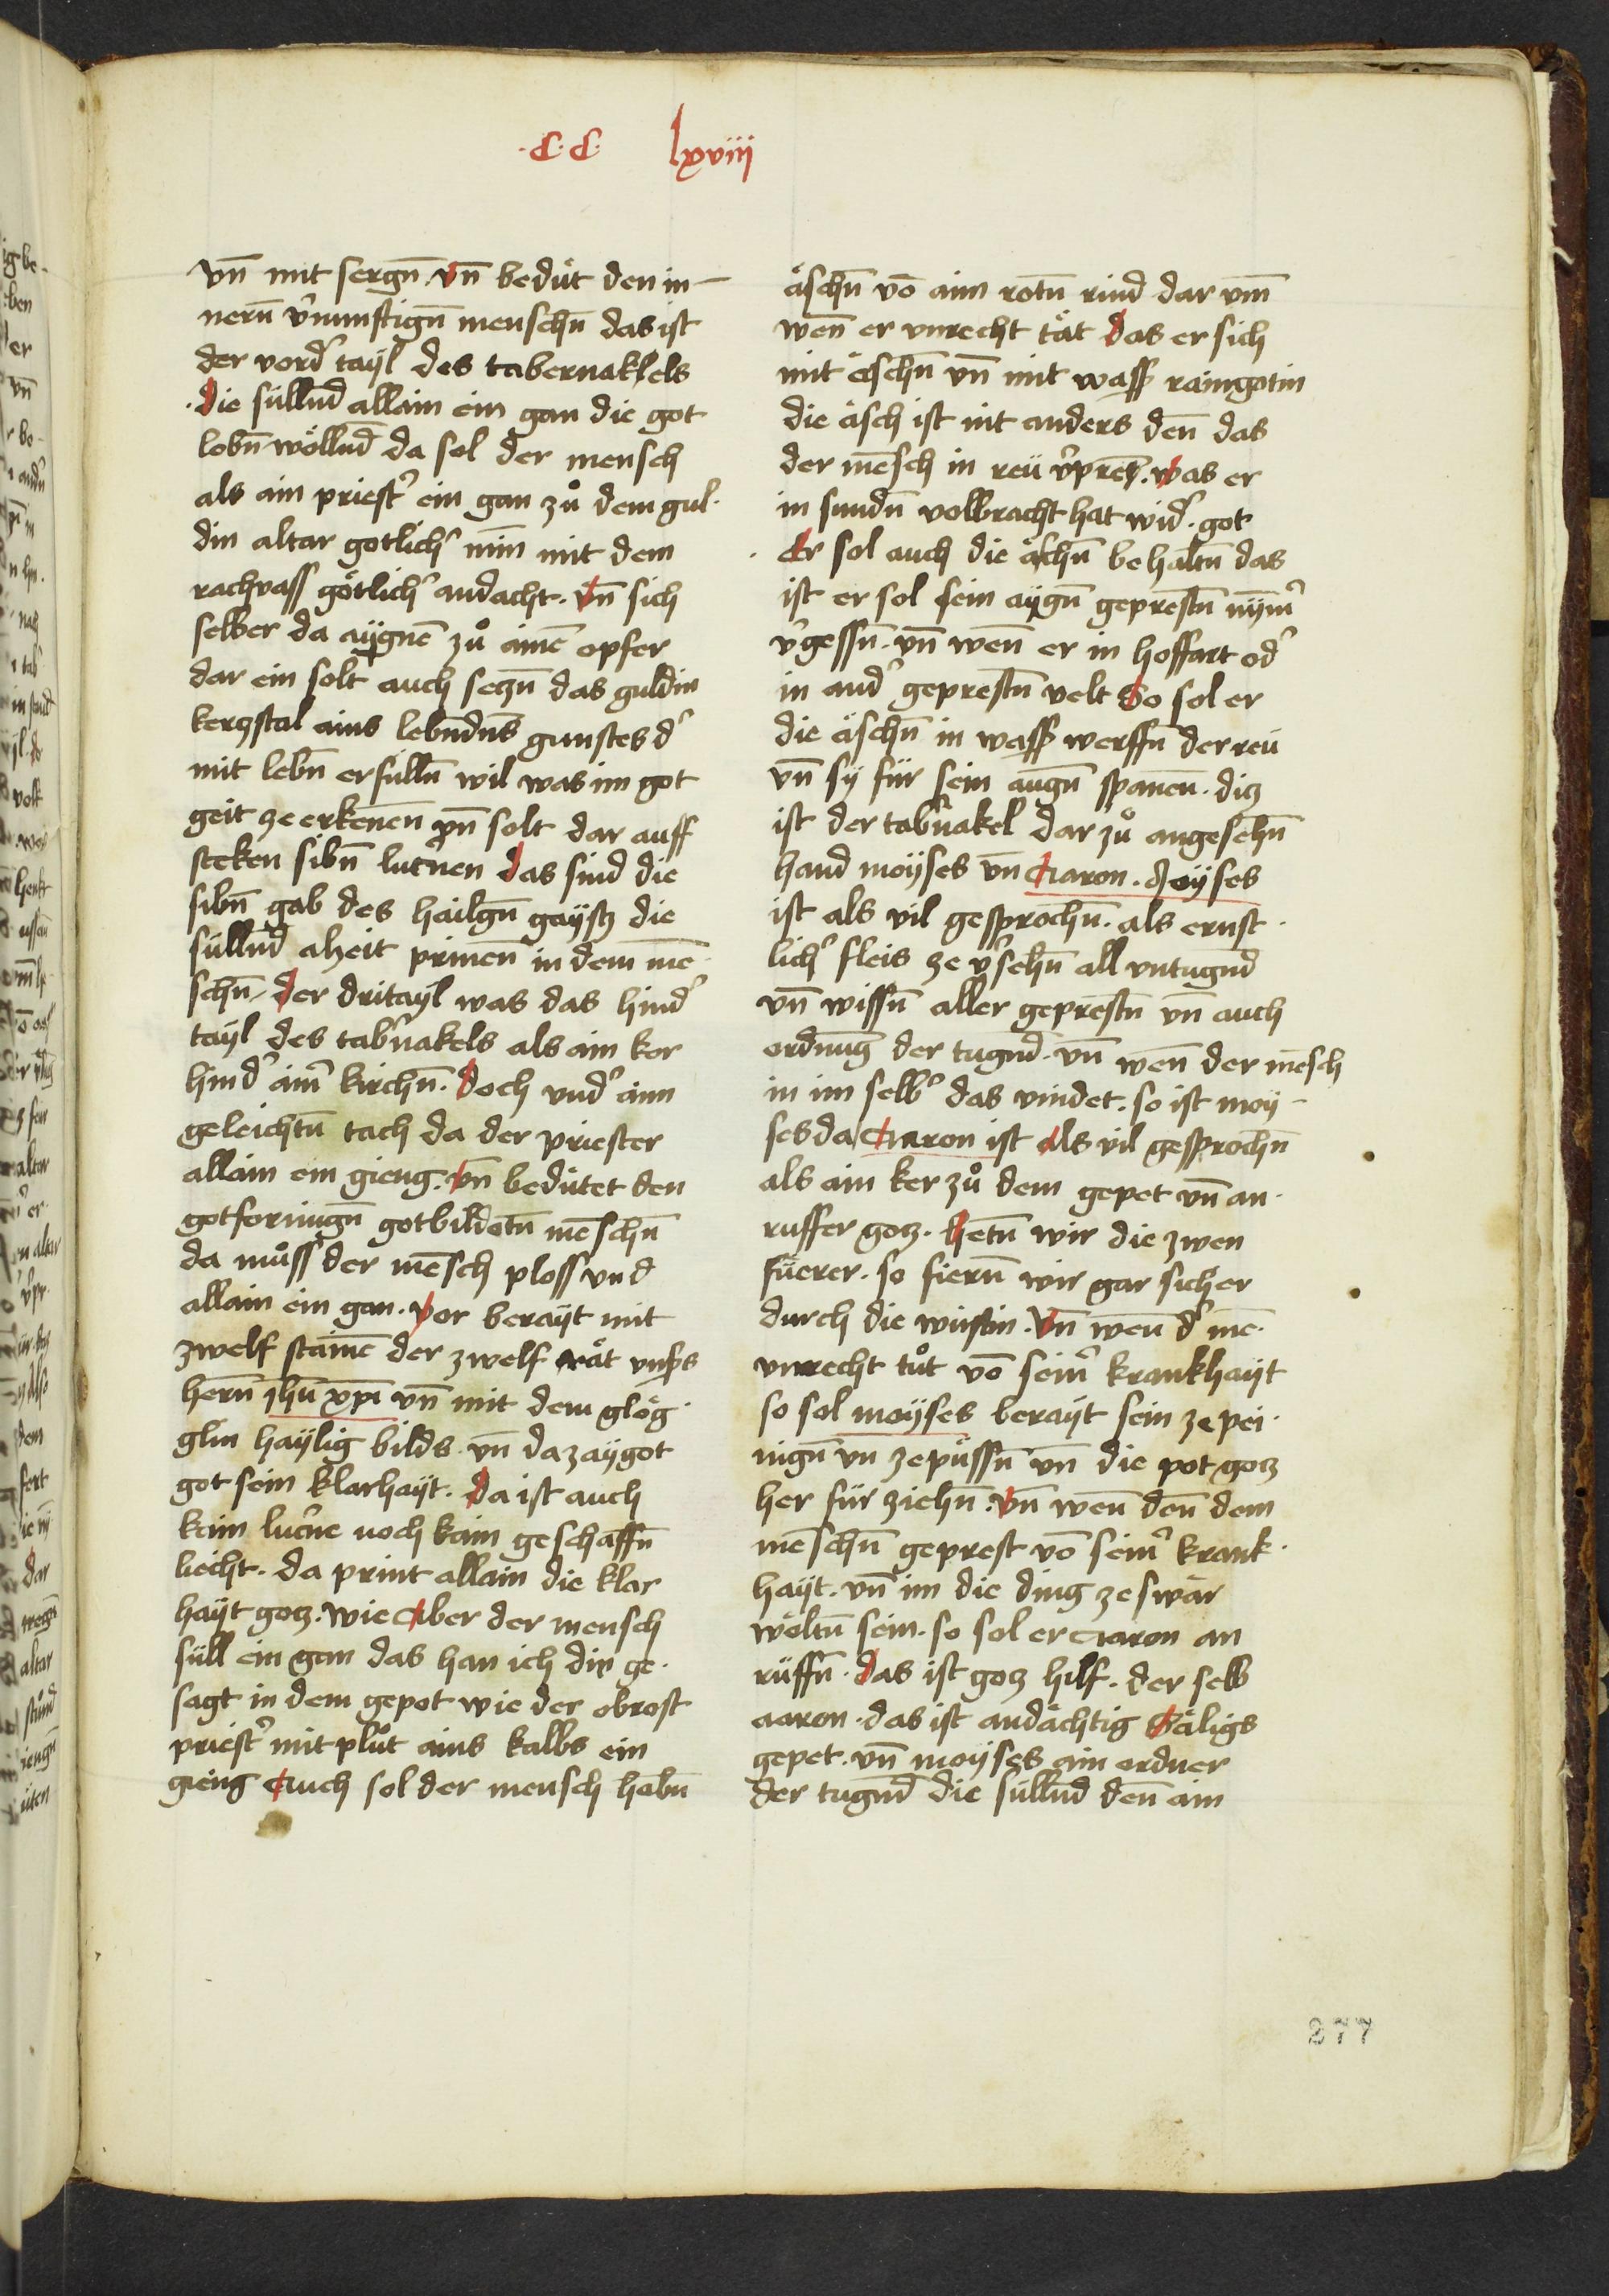 ·C·C· lxviii
vn̄ mit sergn̄. Vn̄ bedüt den in-
nern̄ v'nunftign̄ menschn̄ das ist
der vord' tayl des tabernakels
·die süllnd̄ allain ein gan die got
lobn̄ wöllnd̄ da sol der mensch
als ain priest' ein gan zů dem gul-
din altar gotlich' min̄ mit dem
rachvass götlich' andacht. Vn̄ sich
selber da aygnē zů ainē opfer
dar ein solt auch seczn̄ das guldin
kerczstal ains lebn̄dns̄ gunstes d'
mit lebn̄ erfülln̄ wil was im got
geit ze erkenēn vn̄ solt dar auff
steken sibn̄ lucn'en das sind die
sibn̄ gab des hailgn̄ gaystz die
süllnd̄ alzeit prinēn in dem mē-
schn̄. der dritayl was das hind'
tayl des tab'nakels als ain kor
hind' aim' kirchn̄. doch vnd' aim
geleichtn̄ tach da der priester
allain ein gieng. Vn̄ bedütet den
gotformign̄ gotbildetn̄ mēschn̄
da můss der mēsch ploss vnd
allain ein gan. Vor berayt mit
zwelf stainē der zwelf rät vnss
hern̄ ihū xpī vn̄ mit dem glög-
glin haylig bilds. vn̄ da zaygot
got sein klarhayt. da ist auch
kain lucn'e noch kain geschaffn̄
liecht. da print allain die klar
hayt gocz. wie Aber der mensch
süll ein gan das han ich dir ge-
sagt in dem gepot wie der obrost
priest' mit plůt ains kalbs ein
gieng Auch sol der mensch habn̄
äschn̄ vō aim rotn̄ rind dar vm̄
wen̄ er vnrecht tät das er sich
mit äschn̄ vn̄ mit wass' raingot in
die äsch ist nit anders den̄ das
der mēsch in reü v'pren̄. was er
in sundn̄ volbracht hat wid' got
Er sol auch die äschn̄ behaltn̄ das
ist er sol sein aygn̄ geprestn̄ nym̄'
v'gessn̄. vn̄ wen̄ er in hoffart od'
in and' geprestn̄ velt So sol er
die äschn̄ in wass' werffn̄ der reü
vn̄ sy für sein augn̄ spanen̄. dicz
ist der tab'nakel dar zů angesehn̄
hand moyses vn̄ Aaron. Moyses
ist als vil gesprochn̄. als ernst-
lich' fleis ze v'sehn̄ all vntugnd̄
vn̄ wissn̄ aller geprestn̄ vn̄ auch
ordnung der tugnd̄. vn̄ wen̄ der mēsch
in im selb' das vindet. so ist moy-
ses da Aaron ist als vil gesprochn̄
als ain ker zů dem gepet vn̄ an-
ruffer gocz. hetn̄ wir die zwen
füerer. so fiern̄ wir gar sicher
durch die wüstin. Vn̄ wen̄ d' mē-
vnrecht tůt vō seim' krankhayt
so sol moyses berayt sein ze pei-
nign̄ vn ze püssn̄ vn̄ die pot gocz
her für ziehn̄. Vn̄ wen̄ den̄ dem
mēschn̄ geprest vō seim' krank-
hayt. vn̄ im die ding ze swär
wöltn̄ sein. so sol er Aaron an
rüffn̄. das ist gocz hilf. der selb
aaron. das ist andächtig Säligs
gepet. vn̄ moyses ain ordner
der tugnd̄ die süllnd̄ den̄ ain
277